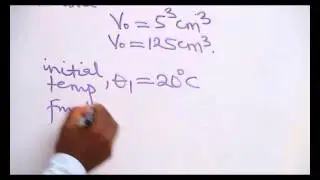 V₀ = 5³cm³
V₀ = 125cm³.
initial
temp, θ₁ = 20°C